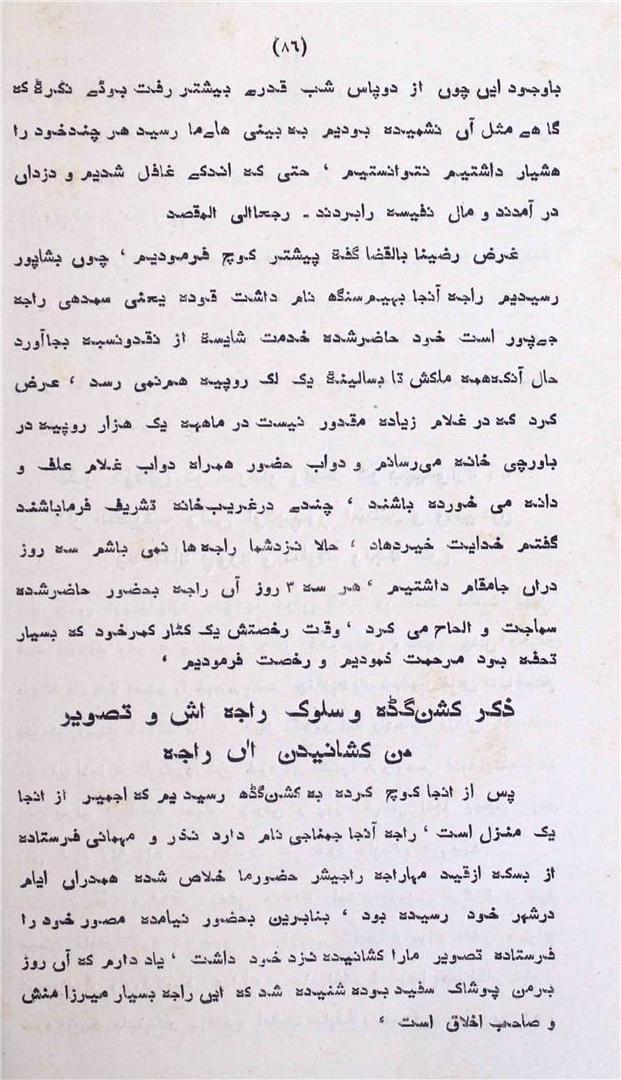 (٨٦)
باوجود ایں چوں از دوپاس شب قدرے بیشتر رفت بوئے نکرۃ کہ
گاھے مثل آں نشمیدہ بودیم بہ بینی ھاےما رسید ھر چندخود را
ھشیار داشتیم نتوانستیم ، حتی کہ اندکے غافل شدیم و دزداں
در آمدند و مال نفیسہ رابردند ـ رجعاالی المقصد
غرض رضینا بالقضا گفتہ پیشتر کوچ فرمودیم ، چوں بشاپور
رسیدیم راجہ آنجا بھیم سنگھ نام داشت قودہ یعنی سمدھی راجہ
جےپور است خود حاضرشدہ خدمت شایستہ از نقدونسبہ بجاآورد
حال آنکہھمہ ملکش تا بسالینۃ یک لک روپیہ ھم نمی رسد ، عرض
کرد کہ در غلام زیادہ مقدور نیست در ماھہ یک ھزار روپیہ در
باورچی خانہ می‌رسانم و دواب حضور ھمراہ دواب غلام علف و
دانہ می خوردہ باشند ، چندے درغریب‌خانہ تشریف فرماباشند
گفتم خدایت خیردھاد ، حالا نزدشما راجہ‌ھا نمی باشم سہ روز
دراں جامقام داشتیم ، ھر سہ ٣ روز آں راجہ بحضور حاضرشدہ
سماجت و الحاح می کرد ، وقت رخصتش یک کٹار کمرخود کہ بسیار
تحفہ بود مرحمت نمودیم و رخصت فرمودیم ،
ذکر کشن گڈہ و سلوک راجہ اش و تصویر
من کشانیدن آں راجہ
پس از انجا کوچ کردہ بہ کشن‌گڈھ رسیدیم کہ اجمیر از انجا
یک منزل است ، راجہ آنجا جمناجی نام دارد نذر و مہمانی فرستادہ
از بسکہ ازقید مہاراجہ راجیشر حضورما خلاص شدہ ھمدراں ایام
درشھر خود رسیدہ بود ، بنابریں بحضور نیامدہ مصور خود را
فرستادہ تصویر مارا کشانیدہ نزد خود داشت ، یاد دارم کہ آں روز
برمن پوشاک سفید بودہ شنیدہ شد کہ ایں راجہ بسیار میرزا منش
و صاحب اخلاق است ،